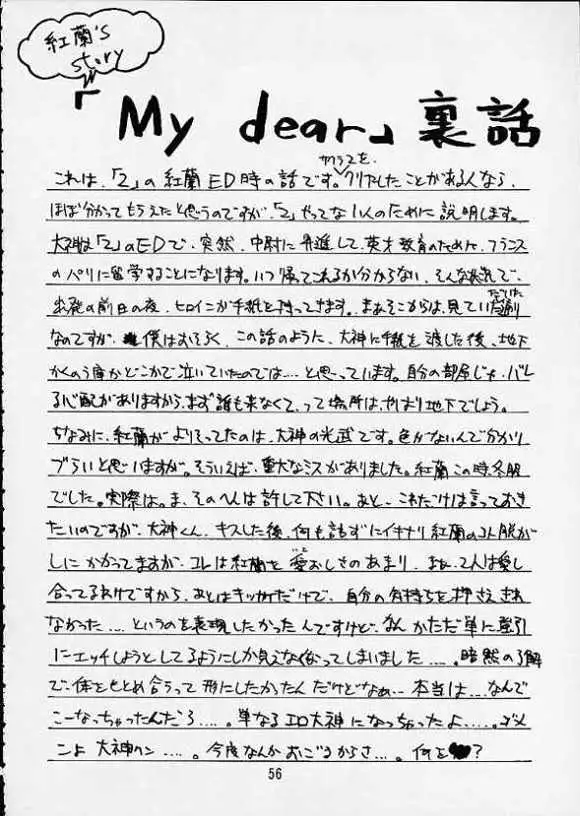 紅蘭's
story
「My dear」裏話
これは、「2」の紅蘭ED時の話です。クリアしたことがある人なら、
ほぼ分かってもらえたと思うのですが、「2」やってない人のために説明します。
大神は「2」のEDで、突然、中尉に昇進して、英才教育のために、フランス
のパリに留学することになります。いつ帰ってこれるか分からない、そんな状況で、
出発の前日の夜、ヒロインが手紙を持ってきます。まぁそこからは、見ていただいた通り
なのですが、僕はおそらく、この話のように、大神に手紙を渡した後、地下
かくのう庫かどこかで泣いていたのでは…と思っています。自分の部屋じゃ、バレ
る心配がありますから、まず誰も来なくて、って場所は、やはり地下でしょう。
ちなみに、紅蘭がよりそってたのは、大神の光武です。色がないんで分かり
づらいと思いますが。そういえば、重大なミスがありました。紅蘭この時、冬服
でした。実際は。ま、そのへんは許して下さい。あと、これだけは言っておき
たいのですが、大神くん、キスした後、何も話さずにイキナリ紅蘭のコト脱が
しにかかってますが、コレは紅蘭を愛おしさのあまり、まぁ、2人は愛し
合ってるわけですから、あとはキッカケだけで、自分の気持ちを押さえきれ
なかった….というのを表現したかったんですけど、なんかただ単に強引
にエッチしようとしてるようにしか見えなくなってしまいました….。暗黙の了解
で、体をもとめ合うって形にしたかったんだけどなぁ…本当は…なんで
こーなっちゃったんだろ….。単なるエロ大神になっちゃったよ…..。ゴメ
ンよ 大神クン….。今度なんかおごるからさ…。何を?
56